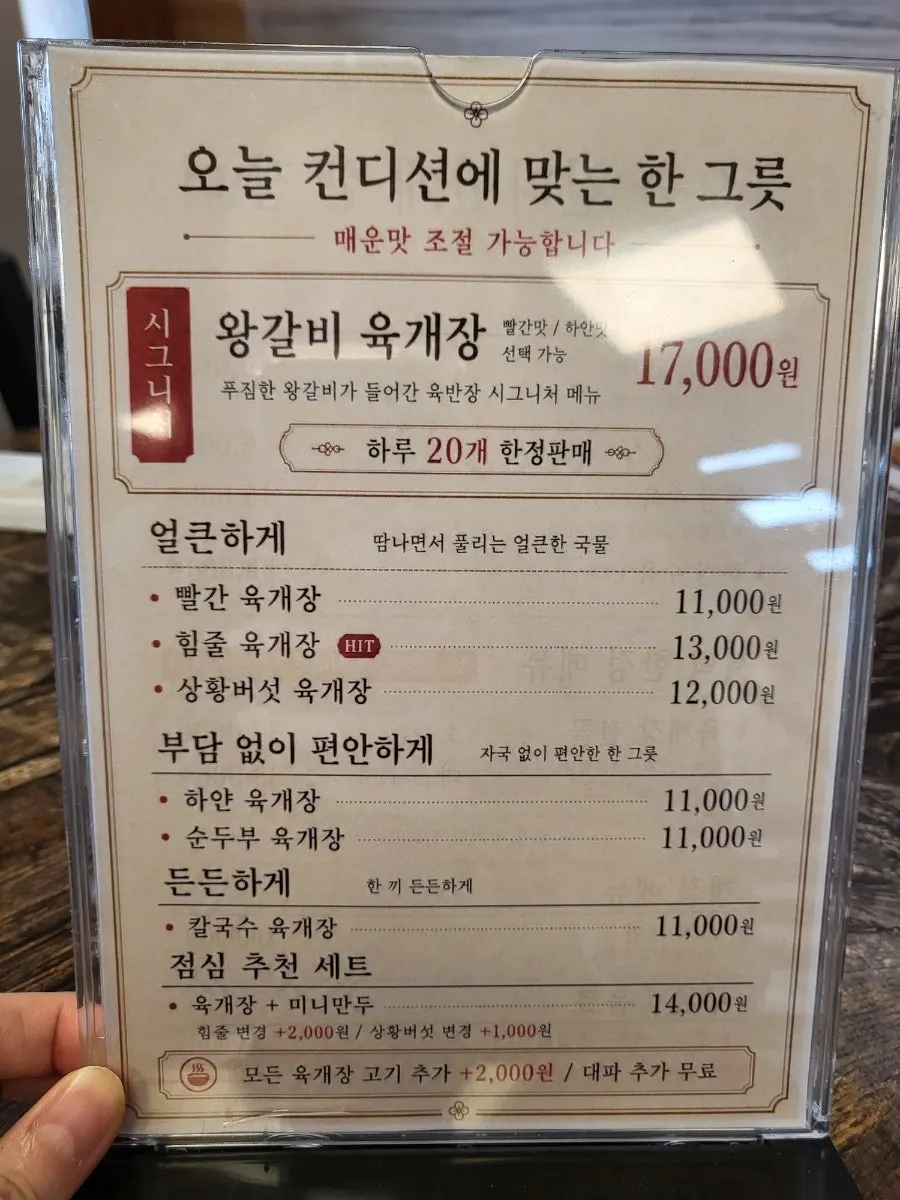 오늘 컨디션에 맞는 한 그릇
매운맛 조절 가능합니다
시그니처
왕갈비 육개장
빨간맛 / 하얀맛
선택 가능
17,000원
푸짐한 왕갈비가 들어간 육반장 시그니처 메뉴
하루 20개 한정판매
얼큰하게 땀나면서 풀리는 얼큰한 국물
• 빨간 육개장 11,000원
• 힘줄 육개장 HIT 13,000원
• 상황버섯 육개장 12,000원
부담 없이 편안하게 자국 없이 편안한 한 그릇
• 하얀 육개장 11,000원
• 순두부 육개장 11,000원
든든하게 한 끼 든든하게
• 칼국수 육개장 11,000원
점심 추천 세트
• 육개장 + 미니만두 14,000원
힘줄 변경 +2,000원 / 상황버섯 변경 +1,000원
모든 육개장 고기 추가 +2,000원 / 대파 추가 무료